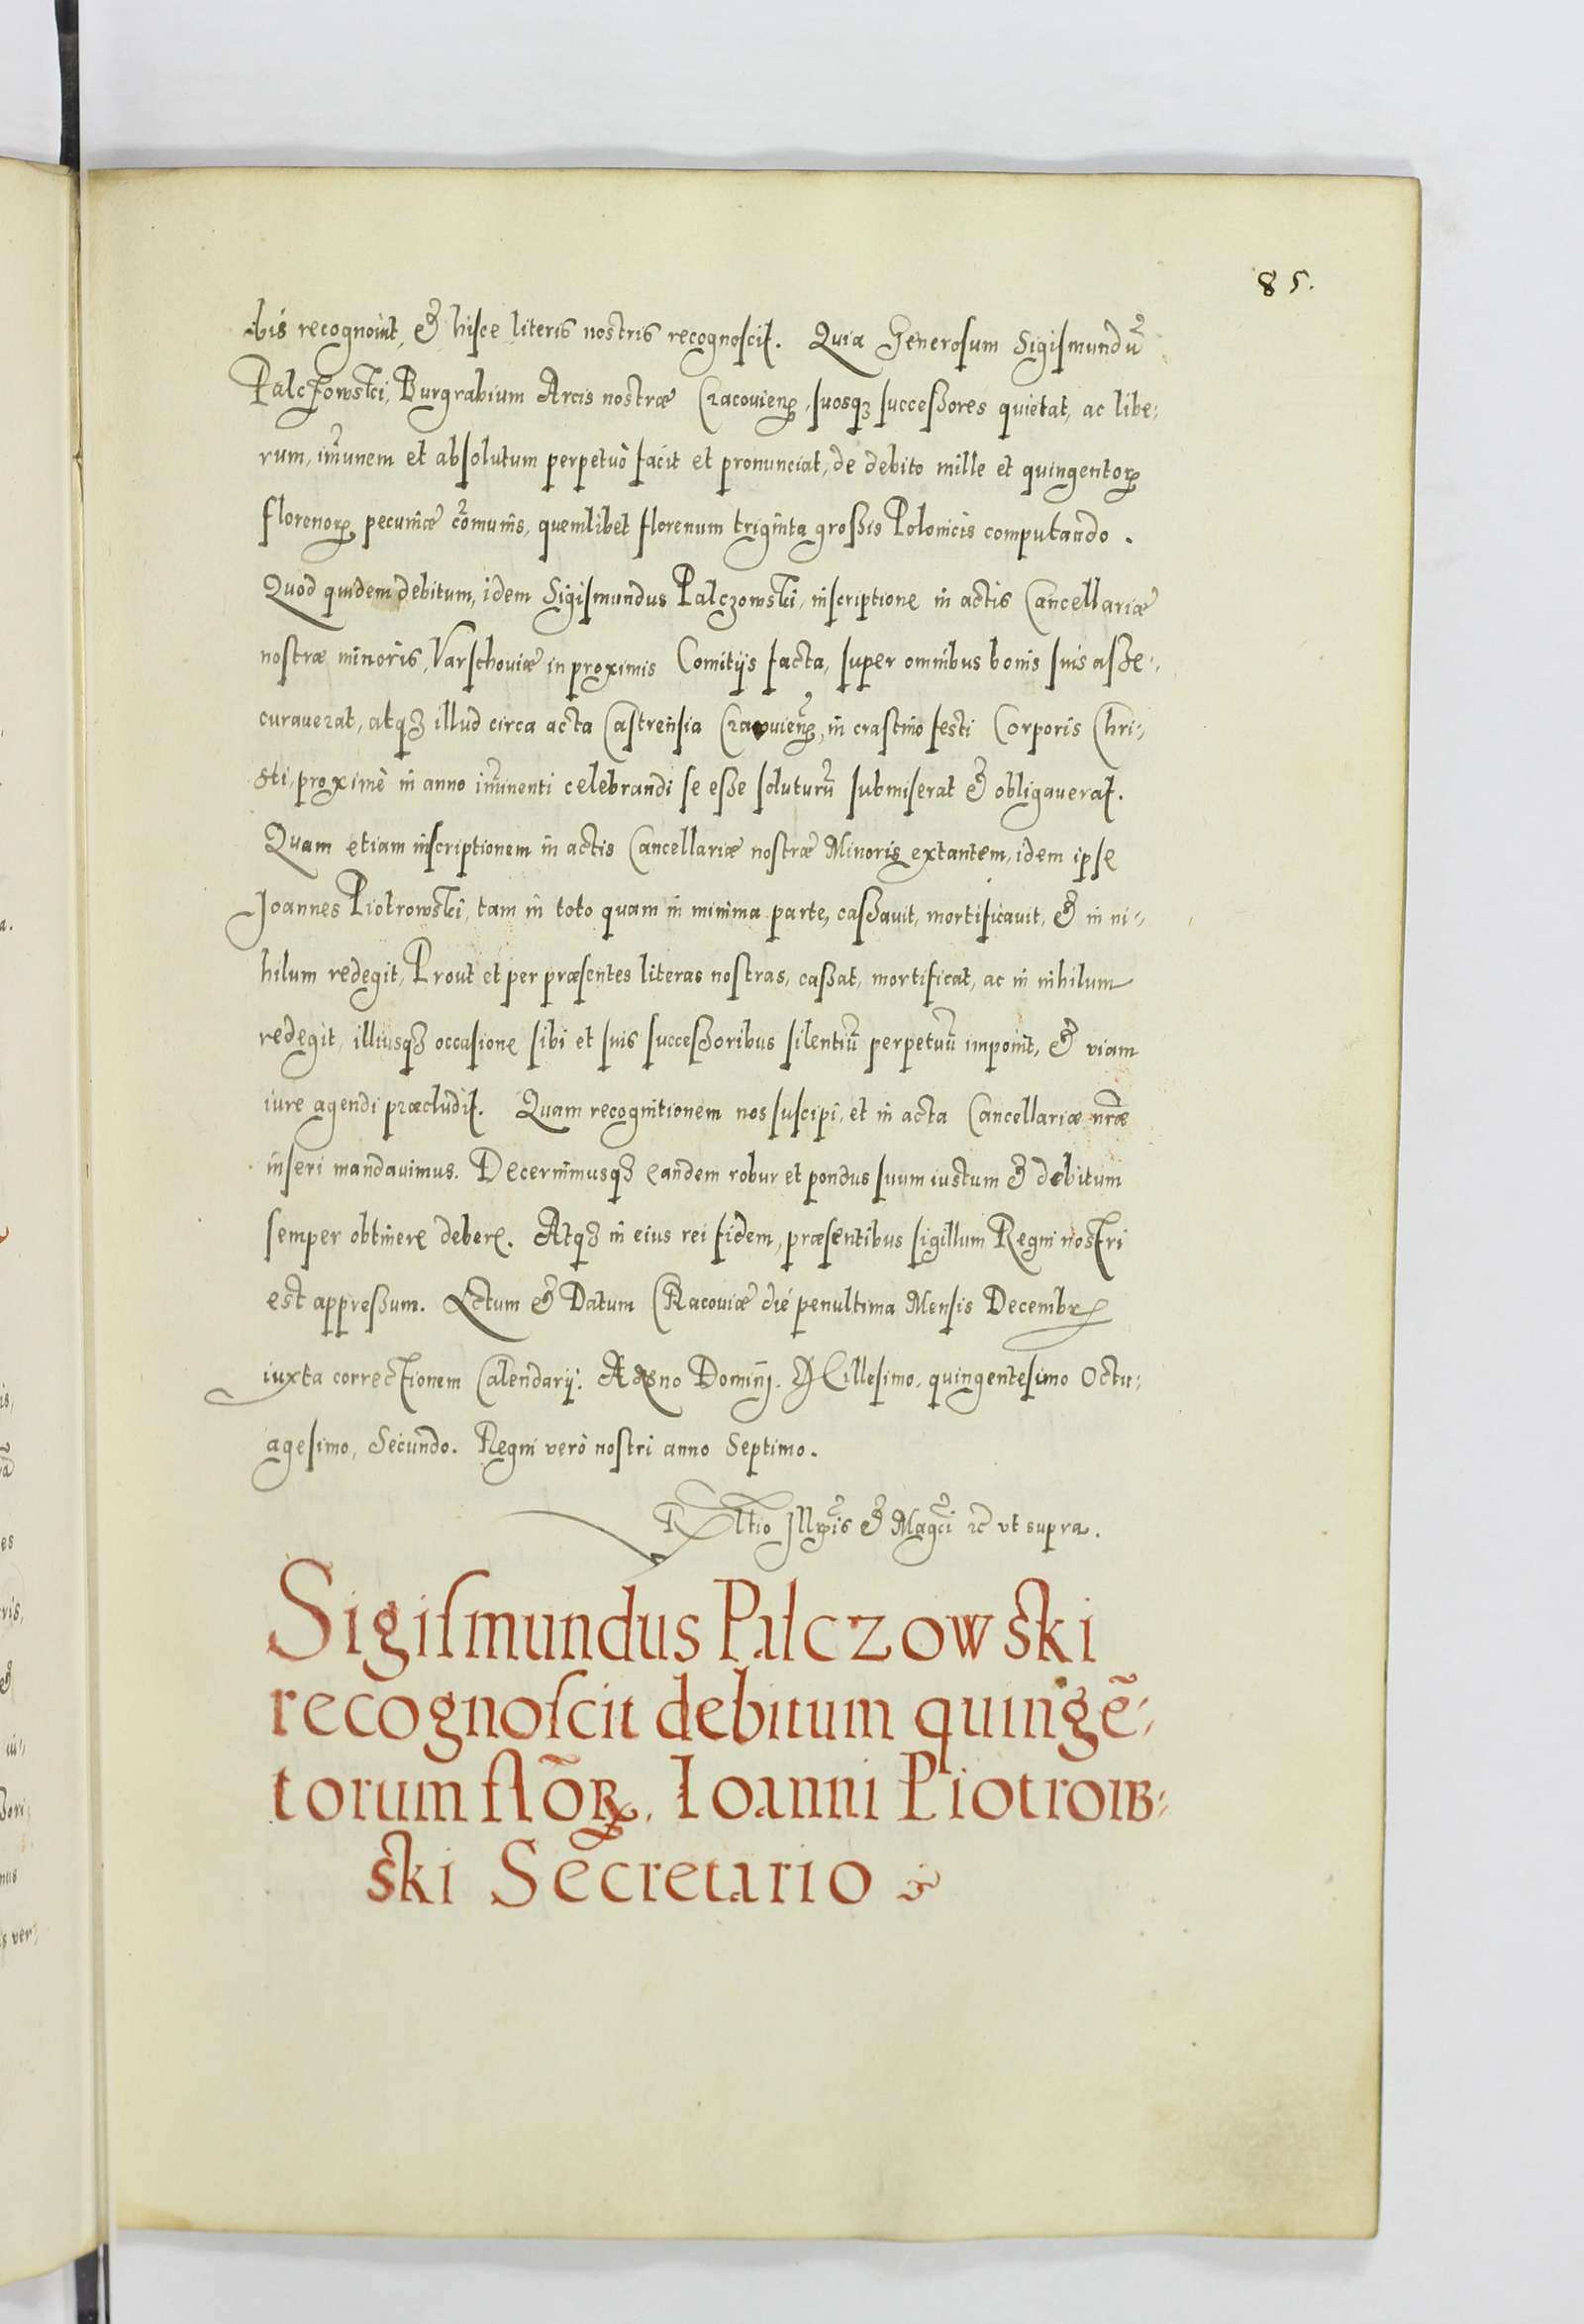 85.
bis recognouit, & hisce literis nostris recognoscit. Quia Generosum Sigismundũ
Palczowski, Burgrabium Arcis nostræ Cracouienꝭ, suosqꝫ successores quietat, ac libe:
rum, im̃unem et absolutum perpetuò facit et pronunciat, de debito mille et quingentoꝝ
florenoꝝ pecuniæ cõmunis, quemlibet florenum triginta grossis Polonicis computando.
Quod quidem debitum, idem Sigismundus Palczowski, inscriptione in actis Cancellariæ
nostræ minoris, Varschouiæ in proximis Comitijs facta, super omnibus bonis suis asse:
curauerat, atqꝫ illud circa acta Castrensia Cracouien̄ꝭ, in crastino festi Corporis Chri:
sti, proximè in anno im̃inenti celebrandi se esse soluturũ submiserat & obligauerat.
Quam etiam inscriptionem in actis Cancellariæ nostræ Minoris extantem, idem ipse
Joannes Piotrowski, tam in toto quam in minima parte, cassauit, mortificauit, & in ni:
hilum redegit, Prout et per præsentes literas nostras, cassat, mortificat, ac in nihilum
redegit, illiusqꝫ occasione sibi et suis successoribus silentiũ perpetuũ imponit, & viam
iure agendi præcludit. Quam recognitionem nos suscipi, et in acta Cancellariæ nr̃æ
inseri mandauimus. Decernimusqꝫ eandem robur et pondus suum iustum & debitum
semper obtinere debere. Atqꝫ in eius rei fidem, præsentibus sigillum Regni nostri
est appressum. Actum & Datum Cracouiæ die penultima Mensis Decembrꝭ
iuxta correctionem Calendarij. Anno Dominj. Millesimo, quingentesimo Octu:
agesimo, Secundo. Regni verò nostri anno Septimo.
Rꝭltio Illr̃is & Magc̃i ꝛc̃ vt supra.
Sigismundus Palczowski
recognoscit debitum quingẽ:
torum flõꝝ. Ioanni Piotrow:
ski Secretario